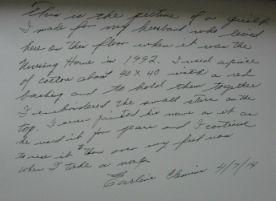 This is the picture of a quilt
I made for my husband who lived
here on this floor when it was the
Nursing Home in 1992. I used a piece
of cotton about 40 x 40 with a red
backing and to hold them together
I embroidered the small stars on the
top. I never painted his name on it as
he used it for years and I continue
to use it to throw over my feet
when I take a nap
4/7/14